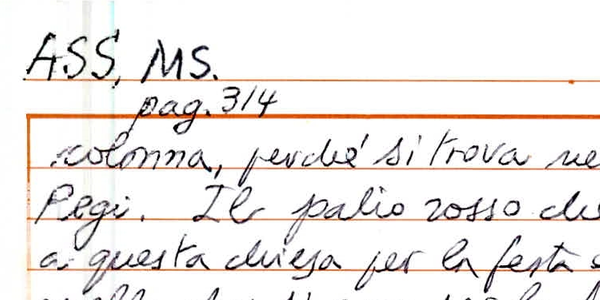 ASS, MS.
pag. 314
colonna, perché si trova ne
Pegi. Il palio rosso che
a questa chiesa per la festa